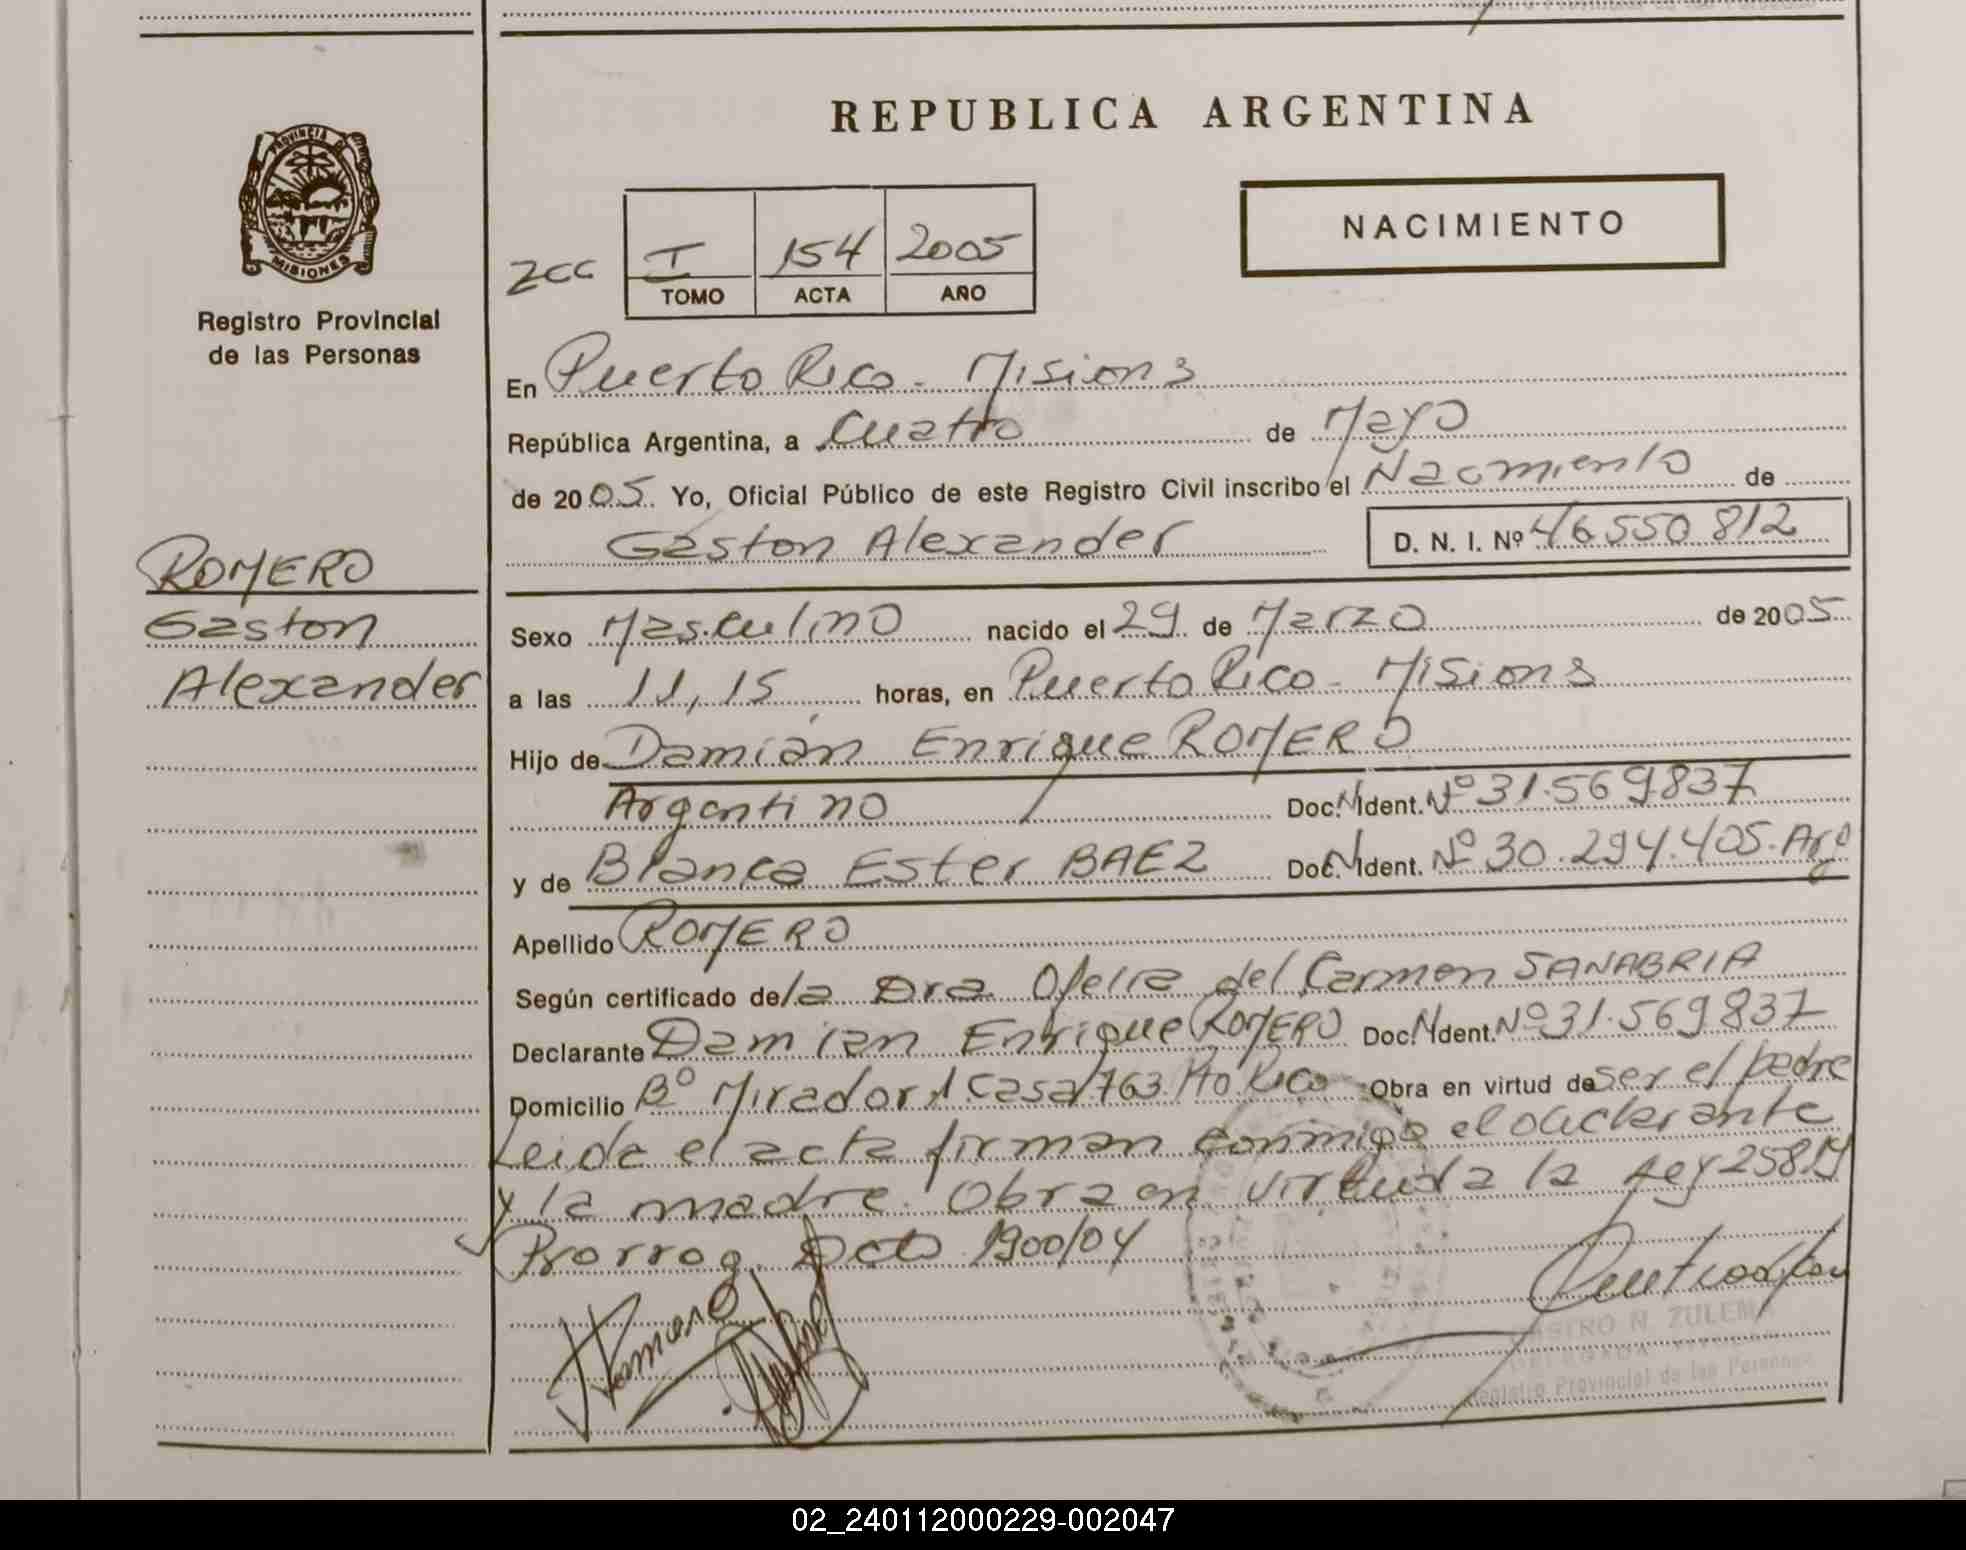 REPUBLICA ARGENTINA
PROVINCIA DE
MISIONES
Registro Provincial
de las Personas
NACIMIENTO
2CC
I 154 2005
TOMO ACTA AÑO
En Puerto Rico - Misions
República Argentina, a Cuatro de Mayo
de 2005. Yo, Oficial Público de este Registro Civil inscribo el Nacimiento de
Gaston Alexander D. N. I. Nº 46550812
ROMERO
Gaston
Alexander
Sexo Masculino nacido el 29 de Marzo de 2005
a las 11,15 horas, en Puerto Rico - Misions
Hijo de Damián Enrique ROMERO
Argentino Doc. N Ident. Nº 31.569837
y de Blanca Ester BAEZ Doc. N Ident. Nº 30.294.405. Arg
Apellido ROMERO
Según certificado de la Dra Ofelia del Carmen SANABRIA
Declarante Damian Enrique ROMERO Doc. N Ident. Nº 31.569837
Domicilio Bº Mirador 1 Casa 763 Pto Rico Obra en virtud de ser el padre
Leida el acta firman conmigo el declarante
y la madre. Obra en virtud a la Ley 25819
Prorrog. Dcto 1900/04
Romero
CASTRO N. ZULEMA
DELEGADA
Registro Provincial de las Personas
02_240112000229-002047